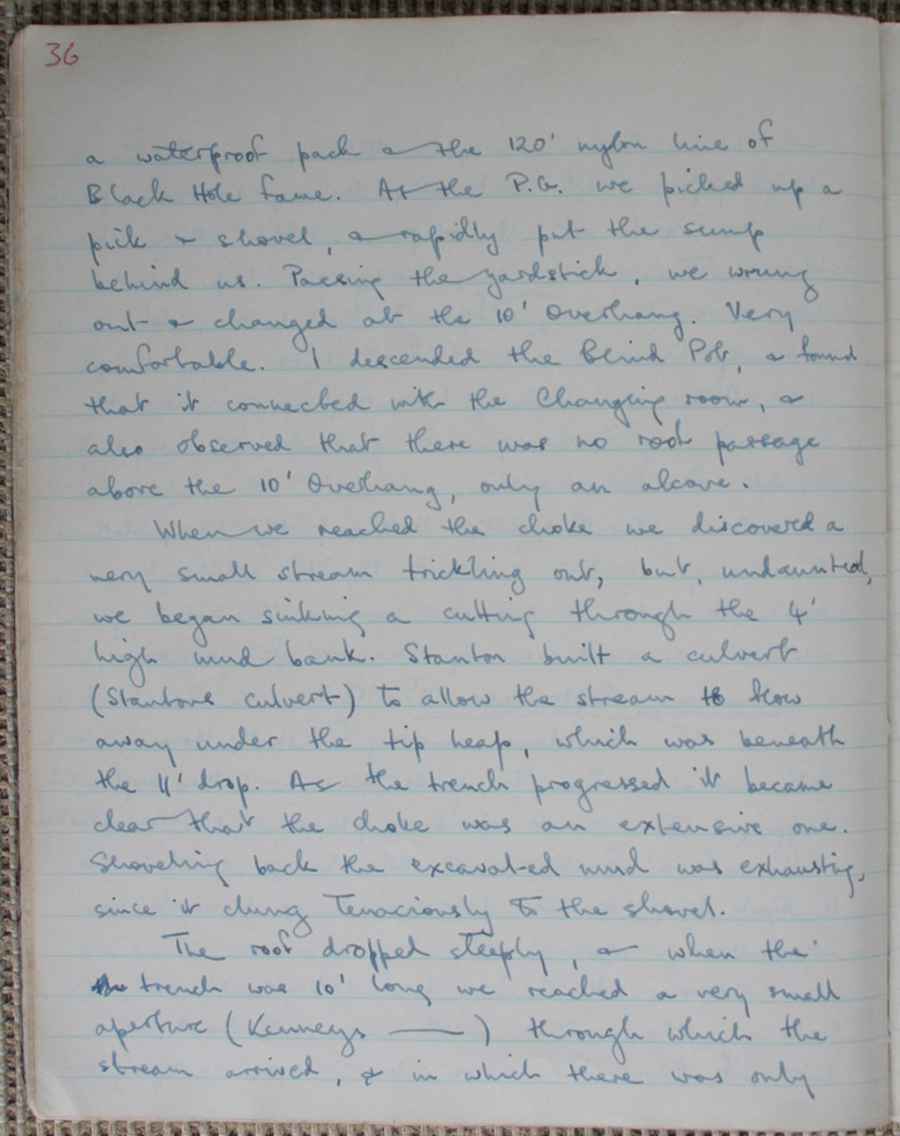 36
a waterproof pack & the 120' nylon line of
Black Hole fame. At the P.G. we picked up a
pick & shovel, & rapidly put the sump
behind us. Passing the yardstick, we wrung
out & changed at the 10' Overhang. Very
comfortable. I descended the Blind Pot, & found
that it connected with the Changing room, &
also observed that there was no roof passage
above the 10' Overhang, only an alcove.
When we reached the choke we discovered a
very small stream trickling out, but, undaunted,
we began sinking a cutting through the 4'
high mud bank. Stanton built a culvert
(Stantons culvert) to allow the stream to flow
away under the tip heap, which was beneath
the 11' drop. As the trench progressed it became
clear that the choke was an extensive one.
Shovelling back the excavated mud was exhausting,
since it clung tenaciously to the shovel.
The roof dropped steeply, & when the
trench was 10' long we reached a very small
aperture (Kenneys ——) through which the
stream arrived, & in which there was only